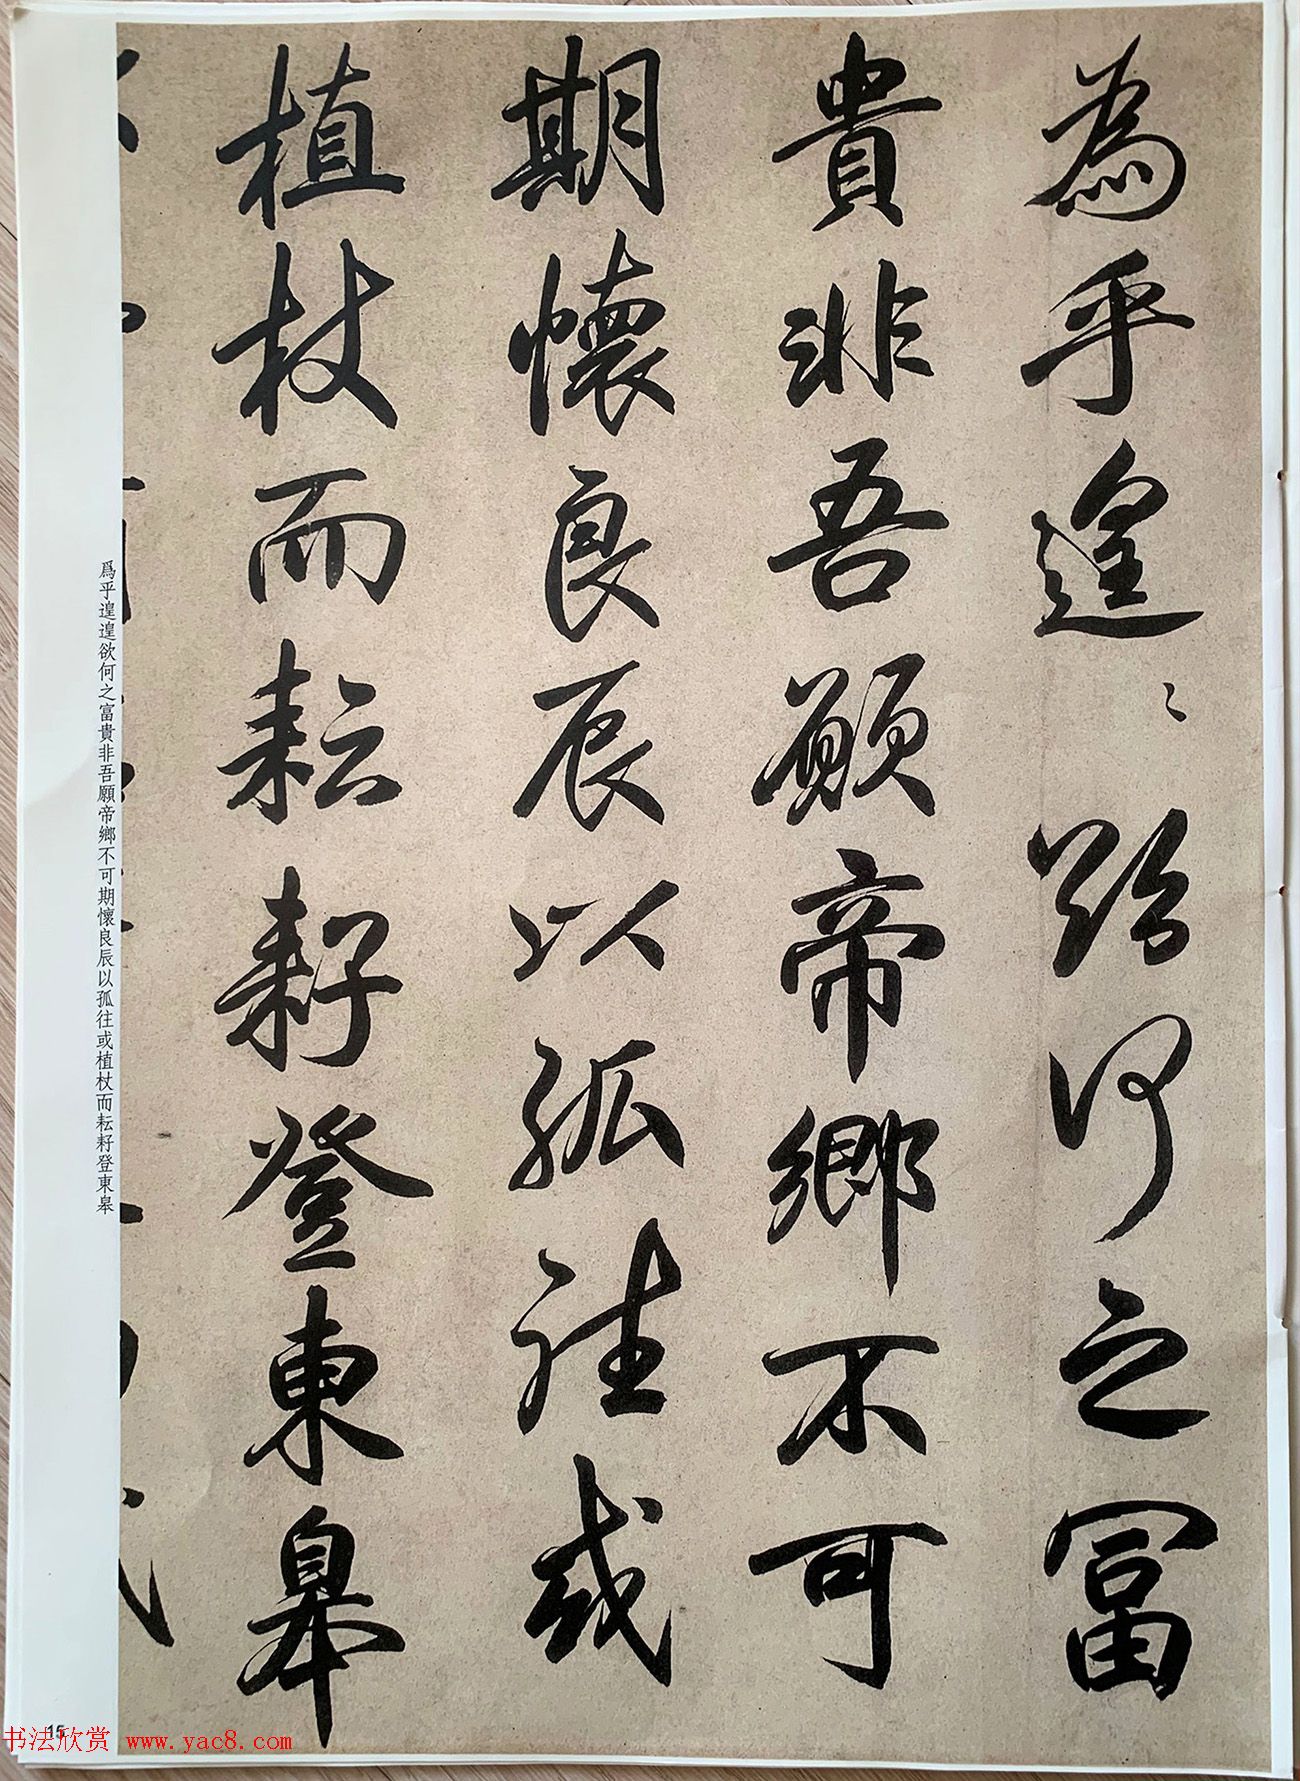 為乎遑〻欲何之冨
貴非吾願帝鄉不可
期懷良辰以孤往或
植杖而耘耔登東皋
爲乎遑遑欲何之富貴非吾願帝鄉不可期懷良辰以孤往或植杖而耘耔登東皋
15
书法欣赏 www.yac8.com